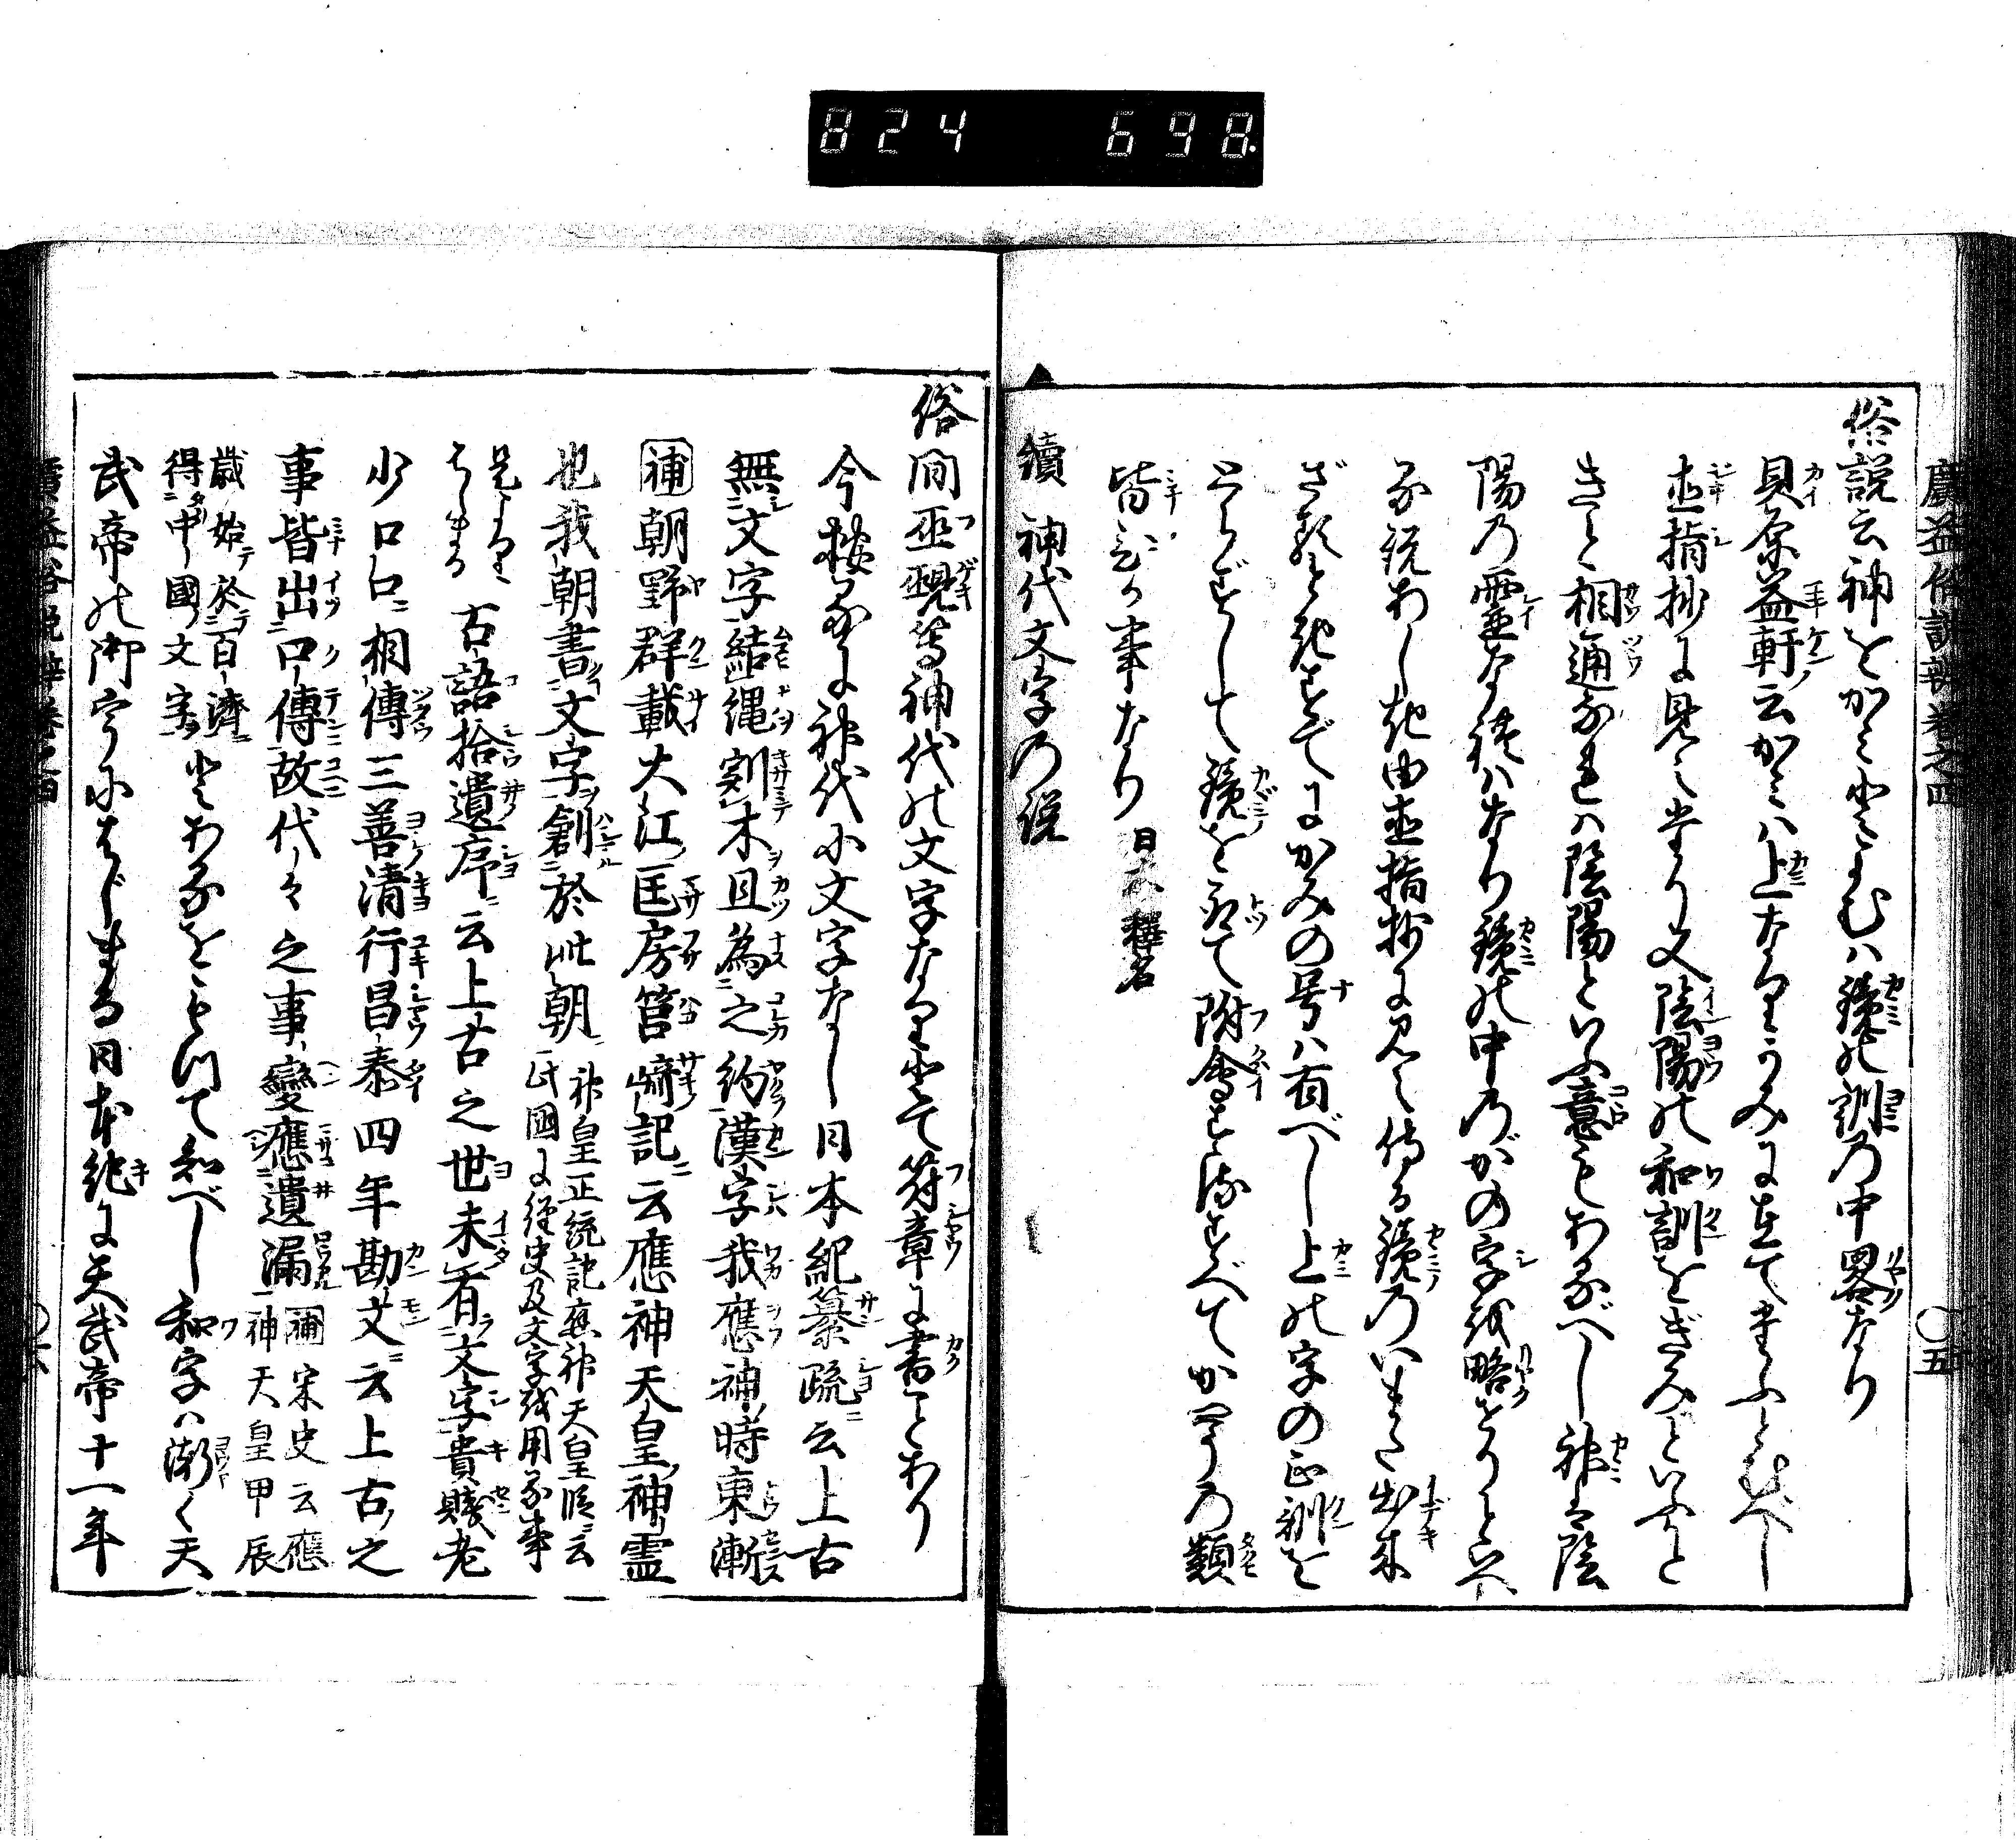 824 698
廣益俗説辨卷之四
五
俗説云神をかみとよむは鏡の訓の中畧なり
貝原益軒云かみは上なりうみに在てたふとむべし
直指抄に見えたり又陰陽の和訓をぎみといふと
きと相通なれは陰陽といふ意もあるべし神は陰
陽の霊なる義はなり鏡の中のがの字を略せりと云
る説あし死由直指抄に見え侍る鏡のいまた出来
ざる先にかみの号は有べし上の字の正訓を
とらずして鏡を取て附會すすべてかやうの類
皆ひが事なり 日本釋名
續 神代文字の説
俗間巫覡等神代の文字なりとて符章に書ことあり
今按るに神代に文字なし日本紀纂疏云上古
無文字結縄刻木且為之約漢字我應神時東漸
補朝野群載大江匡房筥﨑記云應神天皇神霊
也我朝書文字創於此朝 神皇正統記應神天皇段云此國に經史及文字を用る事
是よりはじまる 古語拾遺序云上古之世未有文字貴賤老
少口口相傳三善清行昌泰四年勘文云上古之
事皆出口傳故代々之事變應遺漏 補宋史云應神天皇甲辰
歳始於百濟得中國文字 とあるをもつて知べし和字は漸く天
武帝の御宇にはじまる日本紀に天武帝十一年